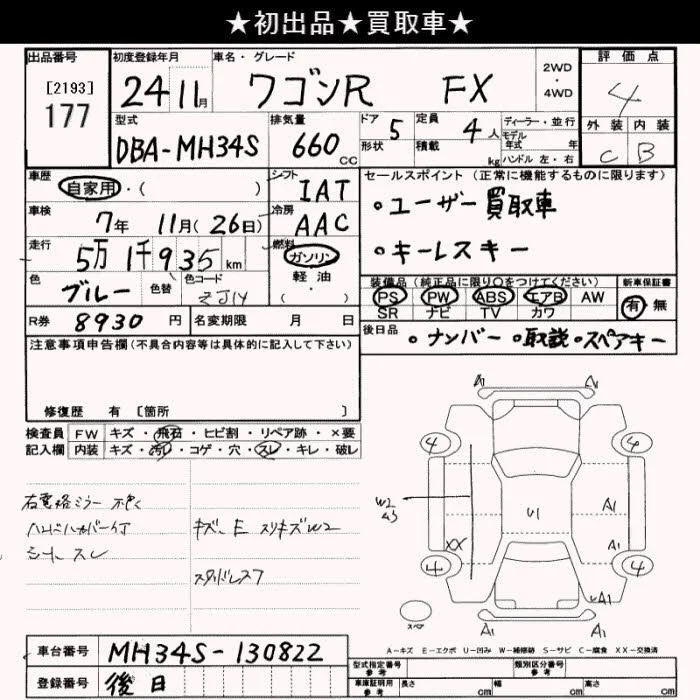 ★初出品★買取車★
出品番号 初度登録年月 車名・グレード 2WD・4WD 評価点
[2193]
177 24 11月 ワゴンR FX 4
型式 排気量 ドア 5 定員 4人 ディーラー・並行 外装 内装
DBA-MH34S 660cc 形状 積載 kg モデル年式 年 ハンドル 左・右 C B
車歴 シフト セールスポイント (正常に機能するものに限ります)
自家用・( ) IAT
車検 冷房 ・ユーザー買取車
7年 11月(26日) AAC
走行 燃料 ・キーレスキー
5万1千935km ガソリン
色 色替 色コード 軽油 装備品 (純正品に限り○をつけてください) 新車保証書
ブルー ZJ14 ・( ) PS PW ABS エアB AW 有・無
SR ナビ TV カワ
R券 8930円 名変期限 月 日 後日品 ・ナンバー ・取説 ・スペアキー
注意事項申告欄(不具合内容等は具体的に記入して下さい)
修復歴 有 [箇所 ]
検査員 FW キズ・飛石・ヒビ割・リペア跡・×要
記入欄 内装 キズ・汚れ・コゲ・穴・スレ・キレ・破レ
シート スレ
キズ、E スリキズW2
スタッドレス7
A1 A1
4 4
W2
U1 A1
XX A1
4 4
A1
A1 A1
スペア
A-キズ E-エクボ U-凹み W-補修跡 S-サビ C-腐食 XX-交換済
車台番号 MH34S-130822
登録番号 後日
型式指定番号 参考 類別区分番号 参考
車庫証明用 参考 長さ cm 幅 cm 高さ cm